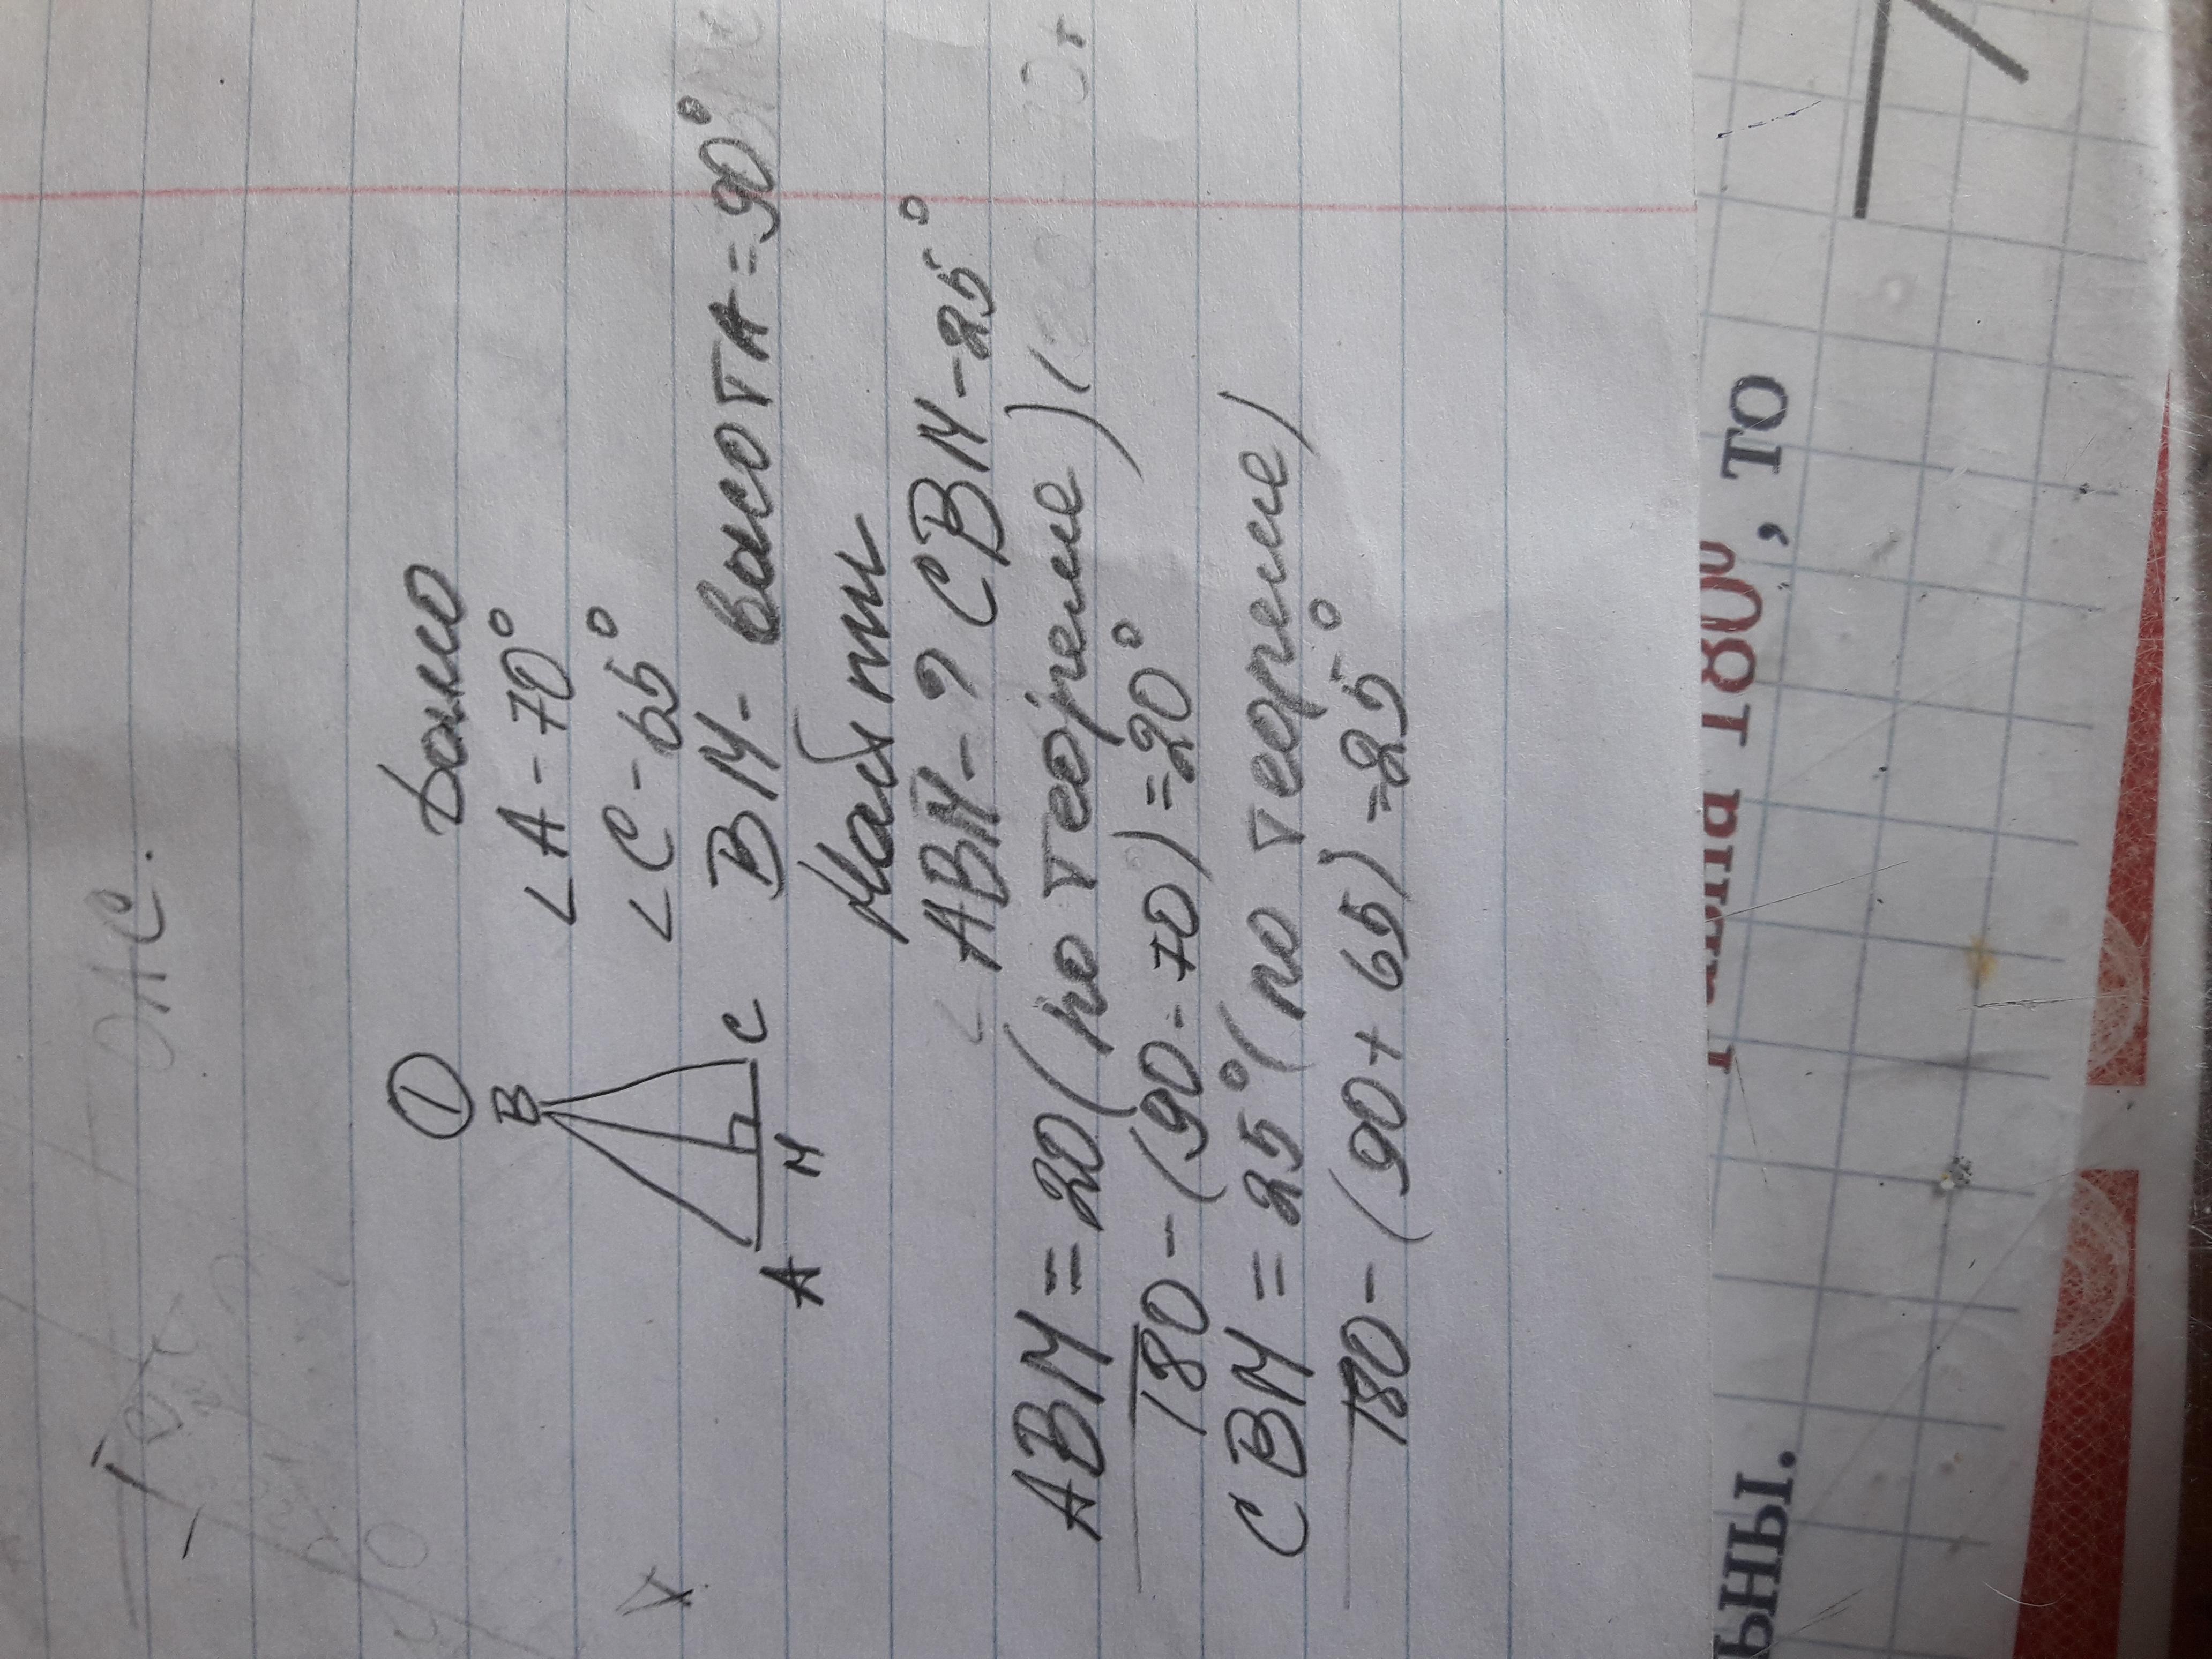 ОАС.
①
Дано
B
∠A - 70°
∠C - 65°
BM - высоTA = 90°
A M C
Найти
∠ABM - ? CBM - 25°
ABM = 20 (по теореме) (
180 - (90 - 70) = 20°
CBM = 25° (по теореме)
180 - (90 + 65) = 25°
180°, то
ьны.